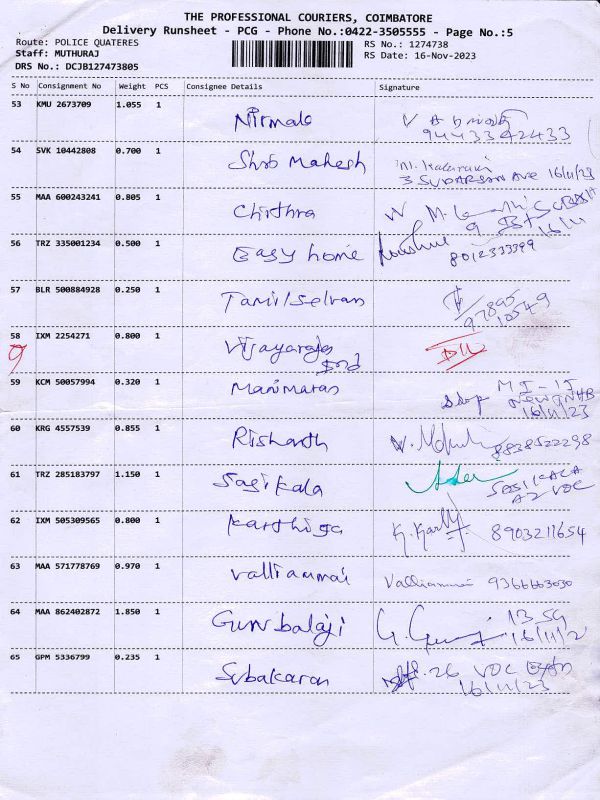 THE PROFESSIONAL COURIERS, COIMBATORE
Delivery Runsheet - PCG - Phone No.:0422-3505555 - Page No.:5
Route: POLICE QUATERES
RS No.: 1274738
Staff: MUTHURAJ
RS Date: 16-Nov-2023
DRS No.: DCJB127473805
S No Consignment No Weight PCS Consignee Details Signature
53 KMU 2673709 1.055 1
Nirmala
9443342433
54 SVK 10442808 0.700 1
Shob Mahesh
3 SUDARSAN Ave 16/11/23
55 MAA 600243241 0.805 1
Chithra
16/11
56 TRZ 335001234 0.500 1
Easy home
8012333399
57 BLR 500884928 0.250 1
Tamilselvan
97895
10549
58 IXM 2254271 0.800 1
9
Vijayaraja
59 KCM 50057994 0.320 1
Manimaran
16/11/23
60 KRG 4557539 0.855 1
Risharth
8838522298
61 TRZ 285183797 1.150 1
Sasikala
SASIKALA
A2 VOC
62 IXM 505309565 0.800 1
Karthiga
8903211654
63 MAA 571778769 0.970 1
Valliammai
Valliammai 9366663030
64 MAA 862402872 1.850 1
Gurubalaji
65 GPM 5336799 0.235 1
Subakaran
26 VOC
16/11/23